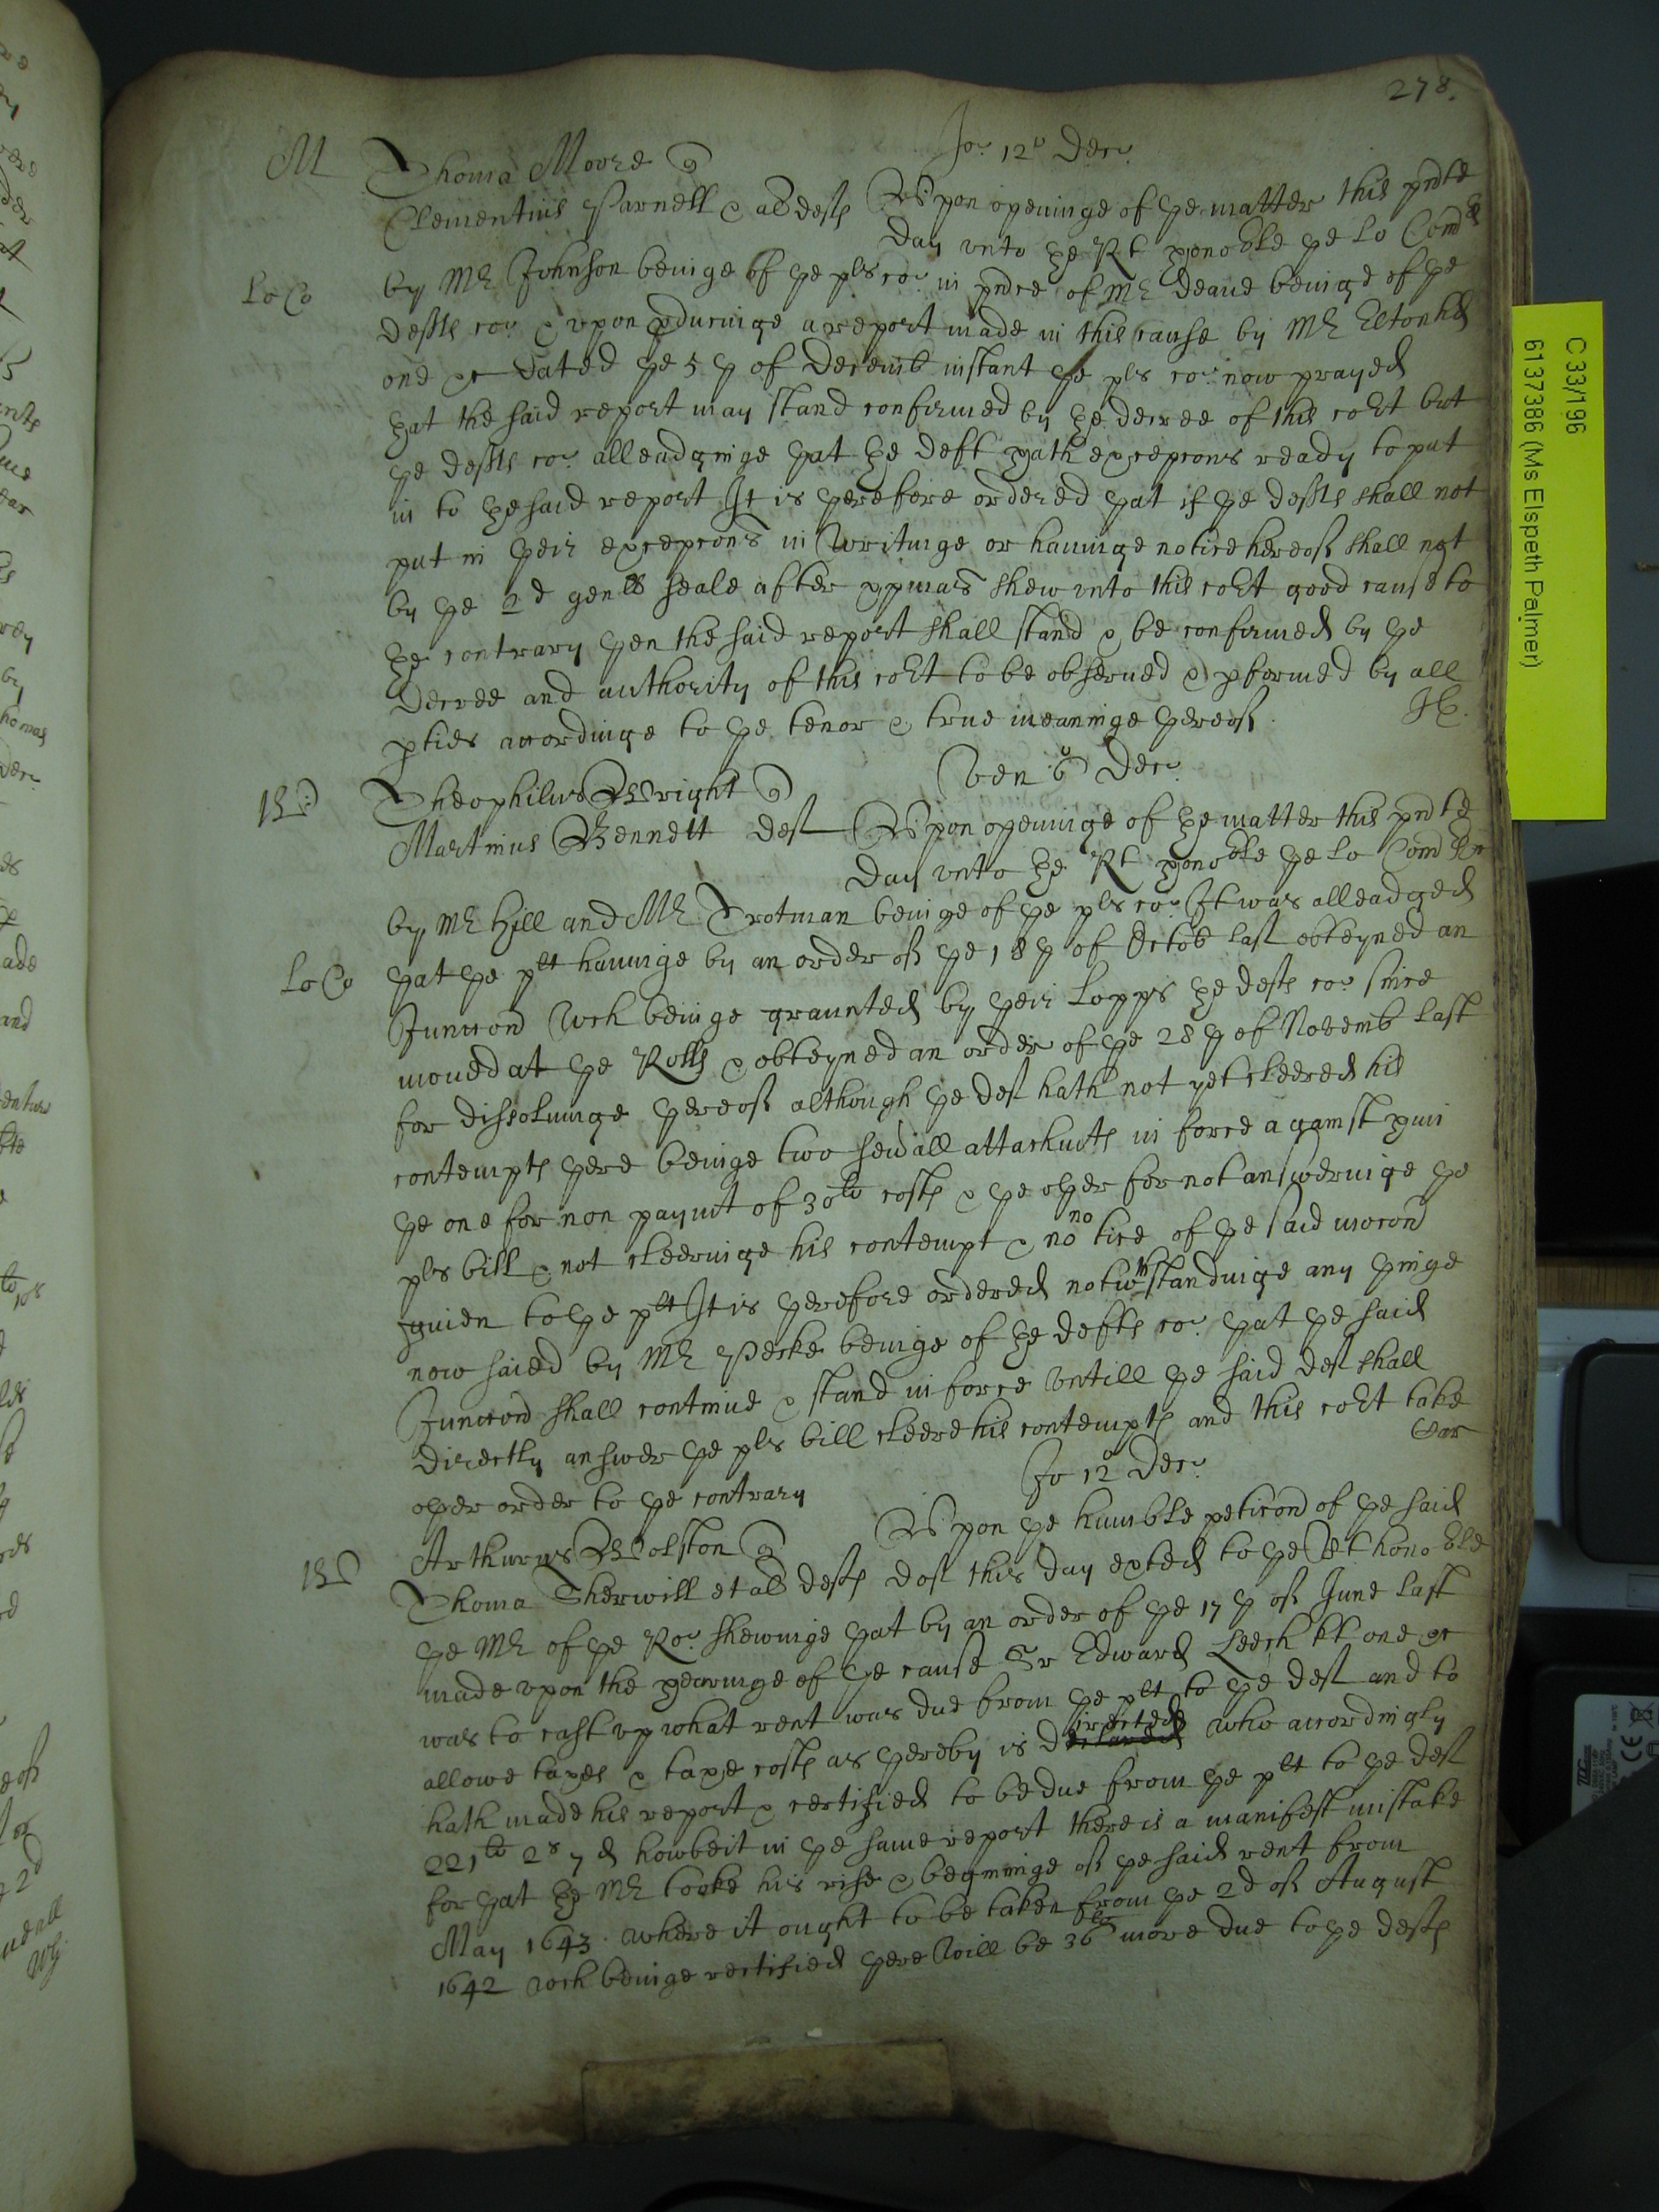 278.
Jo: 12º Decr
M Thoma Moore q
Clementius Parnell & al defts Upon openinge of the matter this pnte
day unto the Rt honoble the Lo Comrs
Lo Co by Mr Johnson beinge of the pls co: in pnce of Mr Deane beinge of the
defts co: & upon pducinge a report made in this cause by Mr Eltonhed
one &c dated the 5 th of Decemb instant the pls co: now prayed
that the said report may stand confirmed by the decree of this cort but
the defts co: alleadginge that the deft hath excepcons ready to put
in to the said report It is therefore ordered that if the defts shall not
put in their excepcons in writinge or havinge notice hereof shall not
by the 2d genll seale after xpmas shew unto this cort good cause to
the contrary then the said report shall stand & be confirmed by the
decree and authority of this cort to be observed & pformed by all
pties accordinge to the tenor & true meaninge thereof.
Ven 6º Decr
Theophilus Wright q
Martinus Bennett deft Upon openinge of the matter this pnte
day unto the Rt honoble the Lo Comrs
by Mr Hill and Mr Trotman beinge of the pls co: It was alleadged
Lo Co that the plt havinge by an order of the 18 th of Octob last obteyned an
Junccon wch beinge graunted by their Lopps the defts co: since
moved at the Rolls & obteyned an order of the 28 th of Novemb last
for dissolvinge thereof although the deft hath not yet cleered his
contempts there beinge two sevall attachmts in force against him
the one for non paymt of 30ls costs & the other for not answeringe the
pls bill & not cleeringe his contempt & no notice of the said mocon
given to the plt It is therefore ordered notwthstandinge any thinge
now saied by Mr Pecke beinge of the defts co: that the said
Junccon shall continue & stand in force untill the said deft shall
directly answer the pls bill cleere his contempts and this cort take
other order to the contrary
Jo 12º Decr
Arthurus Wolston q Upon the humble peticon of the said
Thoma Sherwill et al defts deft this day exted to the Rt honoble
the Mr of the Ro: shewinge that by an order of the 17 th of June last
made upon the hearinge of the cause Sr Edward Leech kt one &c
was to cast up what rent was due from the plt to the deft and to
allowe taxes & taxe costs as thereby is directed who accordingly
hath made his report & certified to be due from the plt to the deft
221li 2s 7d howbeit in the same report there is a manifest mistake
for that the Mr tooke his rise & beginninge of the said rent from
May 1643. where it ought to be taken from the 2d of August
1642 wch beinge rectified there will be 36li more due to the defts
C 33/196
6137386 (Ms Elspeth Palmer)